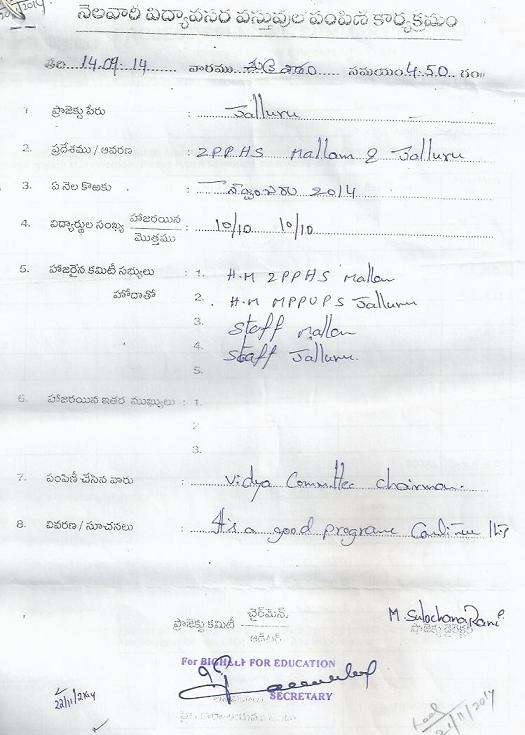 నెలవారీ విద్యావసర వస్తువుల పంపిణి కార్యక్రమం
తేది 14.09.14 వారము సమయం 4.50 గం॥
1. ప్రాజెక్టు పేరు : Jalluru
2. ప్రదేశము / ఆవరణ : ZPPHS Mallam & Jalluru
3. ఏ నెల కొఱకు : 2014
4. విద్యార్థుల సంఖ్య హాజరయిన / మొత్తము : 10/10 10/10
5. హాజరైన కమిటీ సభ్యులు : 1. H.M ZPPHS Mallam
హోదాతో 2. H.M MPPUPS Jalluru
3. Staff Mallam
4. Staff Jalluru.
5.
6. హాజరయిన ఇతర ముఖ్యులు : 1.
2
3.
7. పంపిణీ చేసిన వారు : Vidya Committee Chairman.
8. వివరణ / సూచనలు : It's a good programe Continue
ప్రాజెక్టు కమిటీ ఛైర్మెన్. / ఆడిటర్
M. Sulochana Rani
ప్రాజెక్టు డైరెక్టర్
For BIGHELP FOR EDUCATION
SECRETARY
22/11/2014
21/11/2014